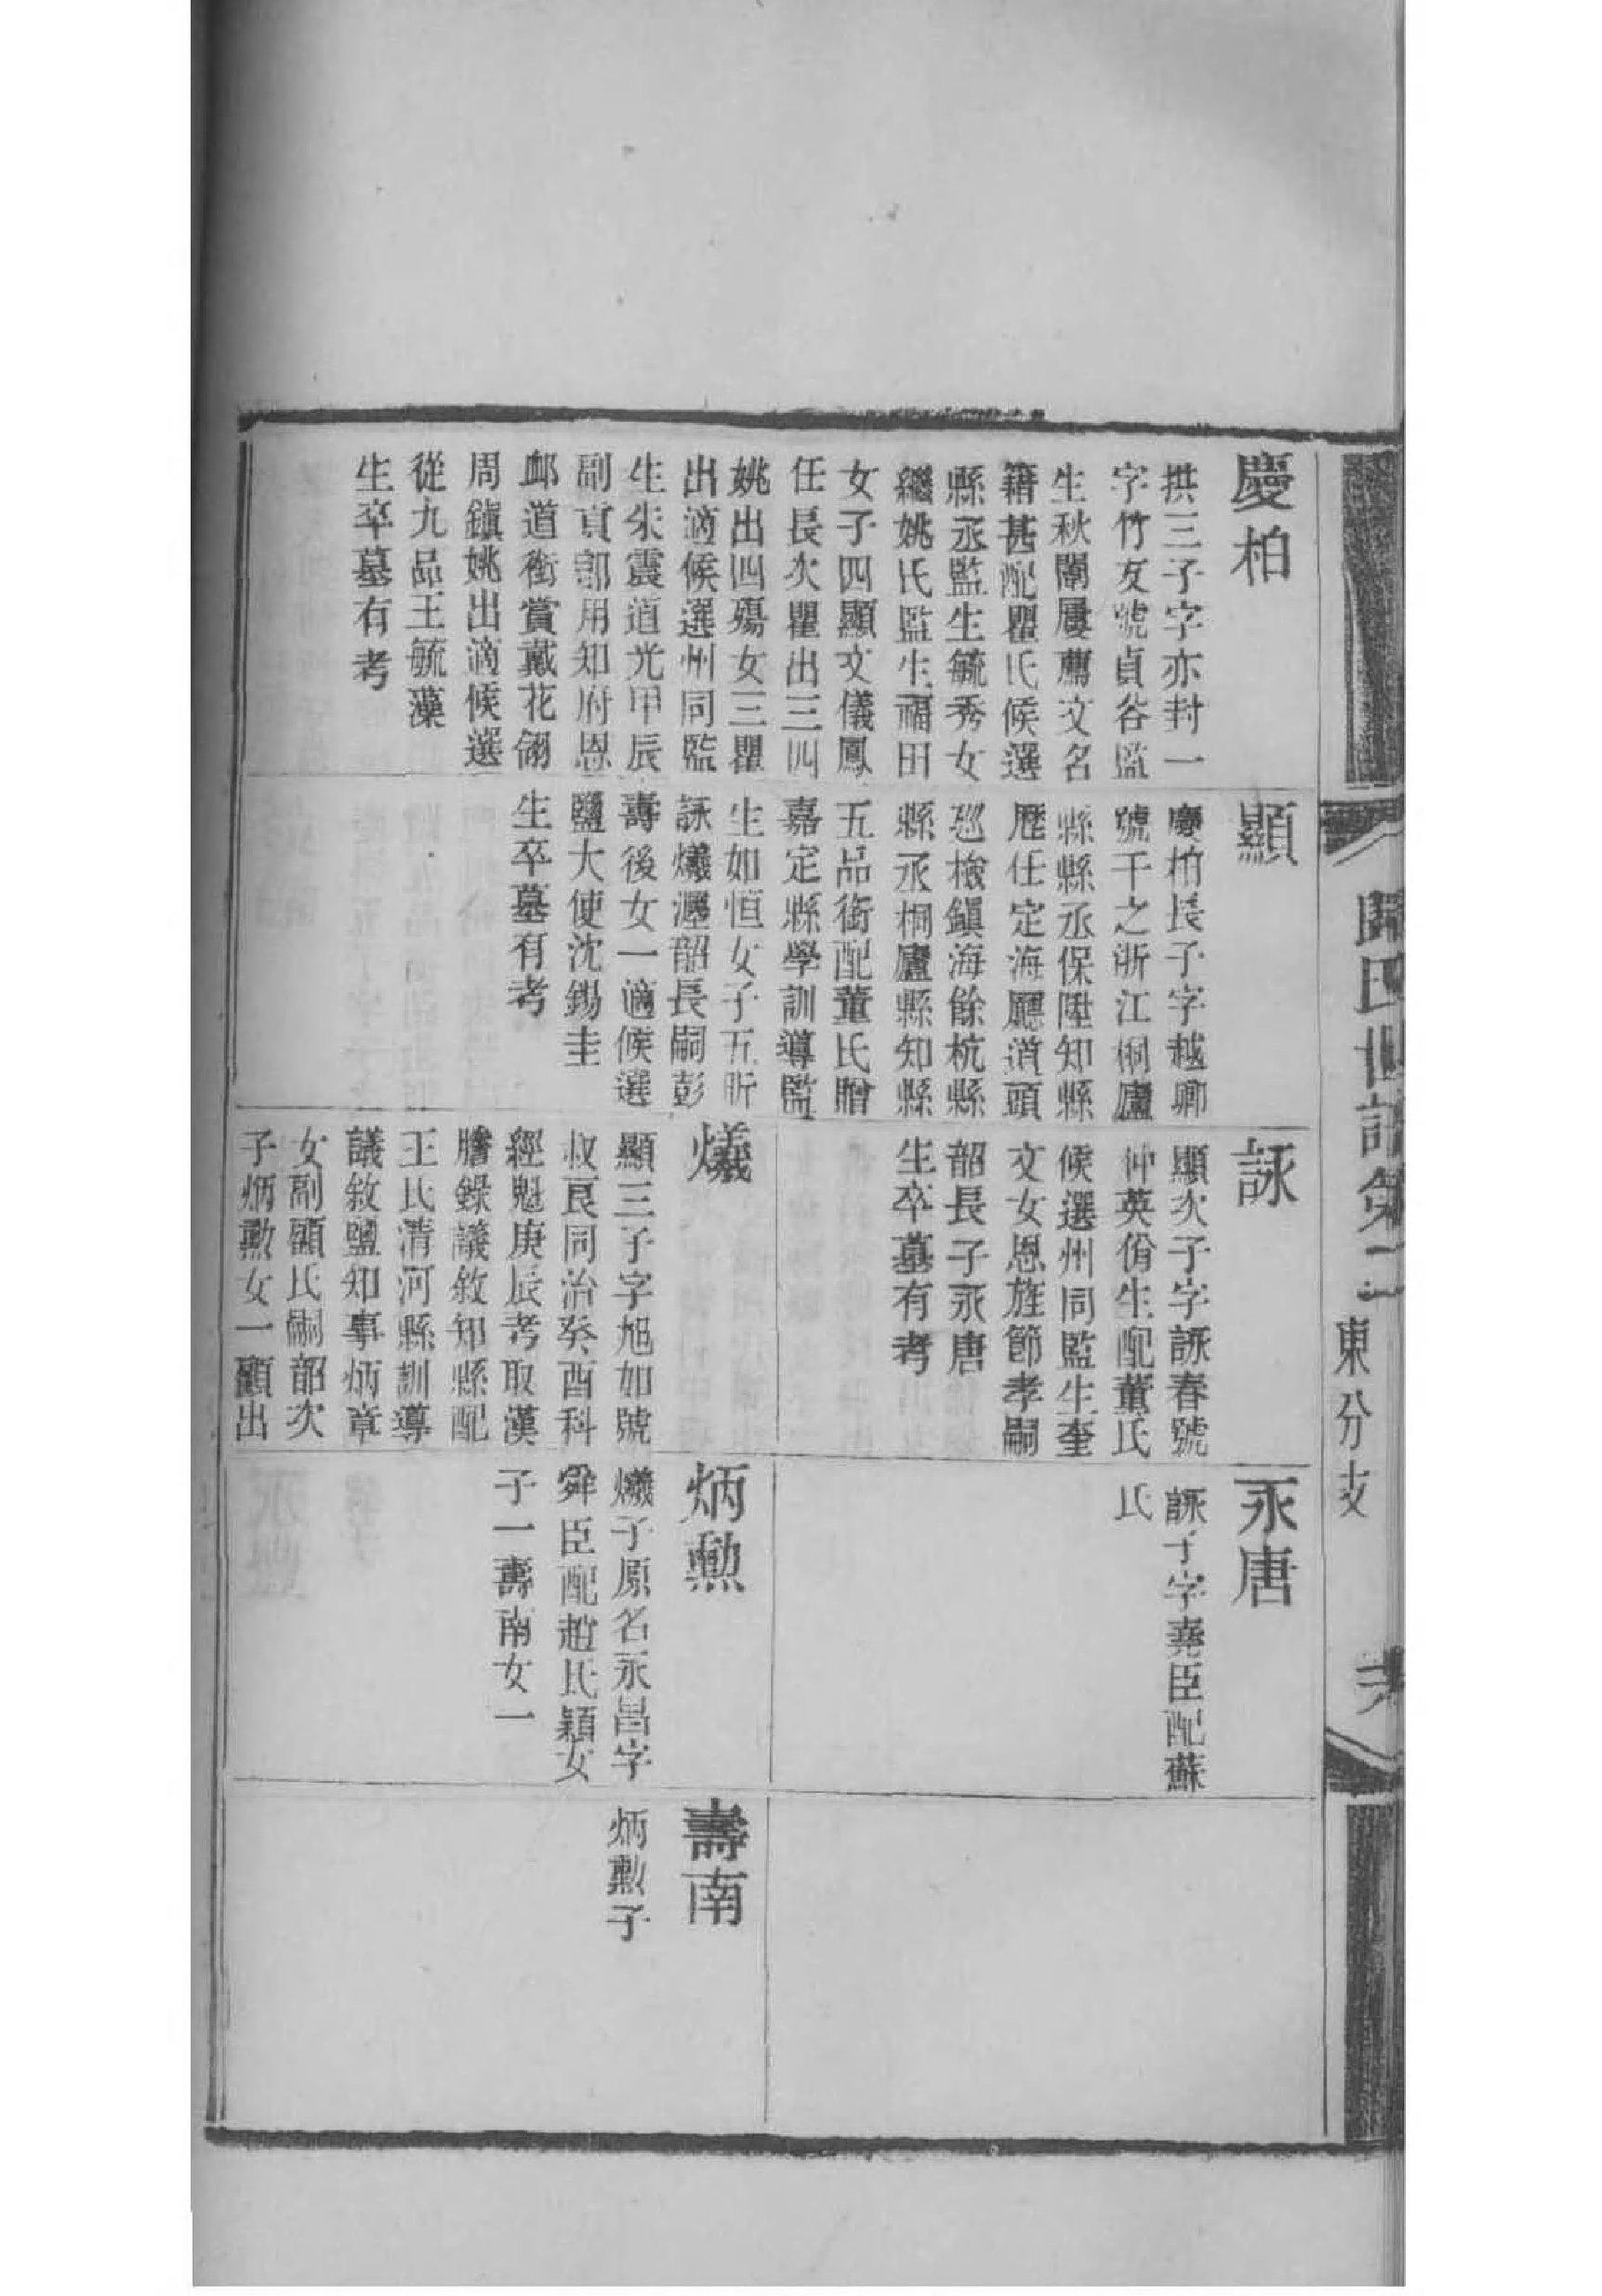 慶柏
拱三子字亦封一
字竹友號貞谷監
生秋闈屢薦文名
籍甚配瞿氏候選
縣丞監生毓秀女
繼姚氏監生福田
女子四顯文儀鳳
任長次瞿出三四
姚出四殤女三瞿
出適候選州同監
生朱震道光甲辰
副貢郎用知府恩
卹道銜賞戴花翎
周鎮姚出適候選
從九品王毓藻
生卒墓有考
顯
慶柏長子字越卿
號干之浙江桐廬
縣縣丞保陞知縣
歷任定海廳道頭
巡檢鎮海餘杭縣
縣丞桐廬縣知縣
五品銜配董氏贈
嘉定縣學訓導監
生如恒女子五昕
詠爔瀍韶長嗣彭
壽後女一適候選
鹽大使沈錫圭
生卒墓有考
詠
顯次子字詠春號
仲英佾生配董氏
候選州同監生奎
文女恩旌節孝嗣
韶長子永唐
生卒墓有考
永唐
詠子字堯臣配蘇
氏
爔
顯三子字旭如號
叔良同治癸酉科
經魁庚辰考取漢
謄錄議敘知縣配
王氏清河縣訓導
議敘鹽知事炳章
女副顧氏嗣韶次
子炳勳女一顧出
炳勳
爔子原名永昌字
舜臣配趙氏穎女
子一壽南女一
壽南
炳勳子
氏世譜第二 東分支